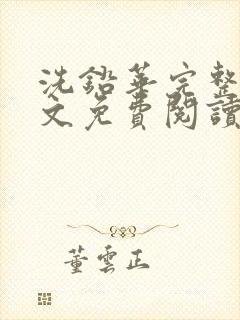 洗鉛華完整
文免費閱讀
董雲正